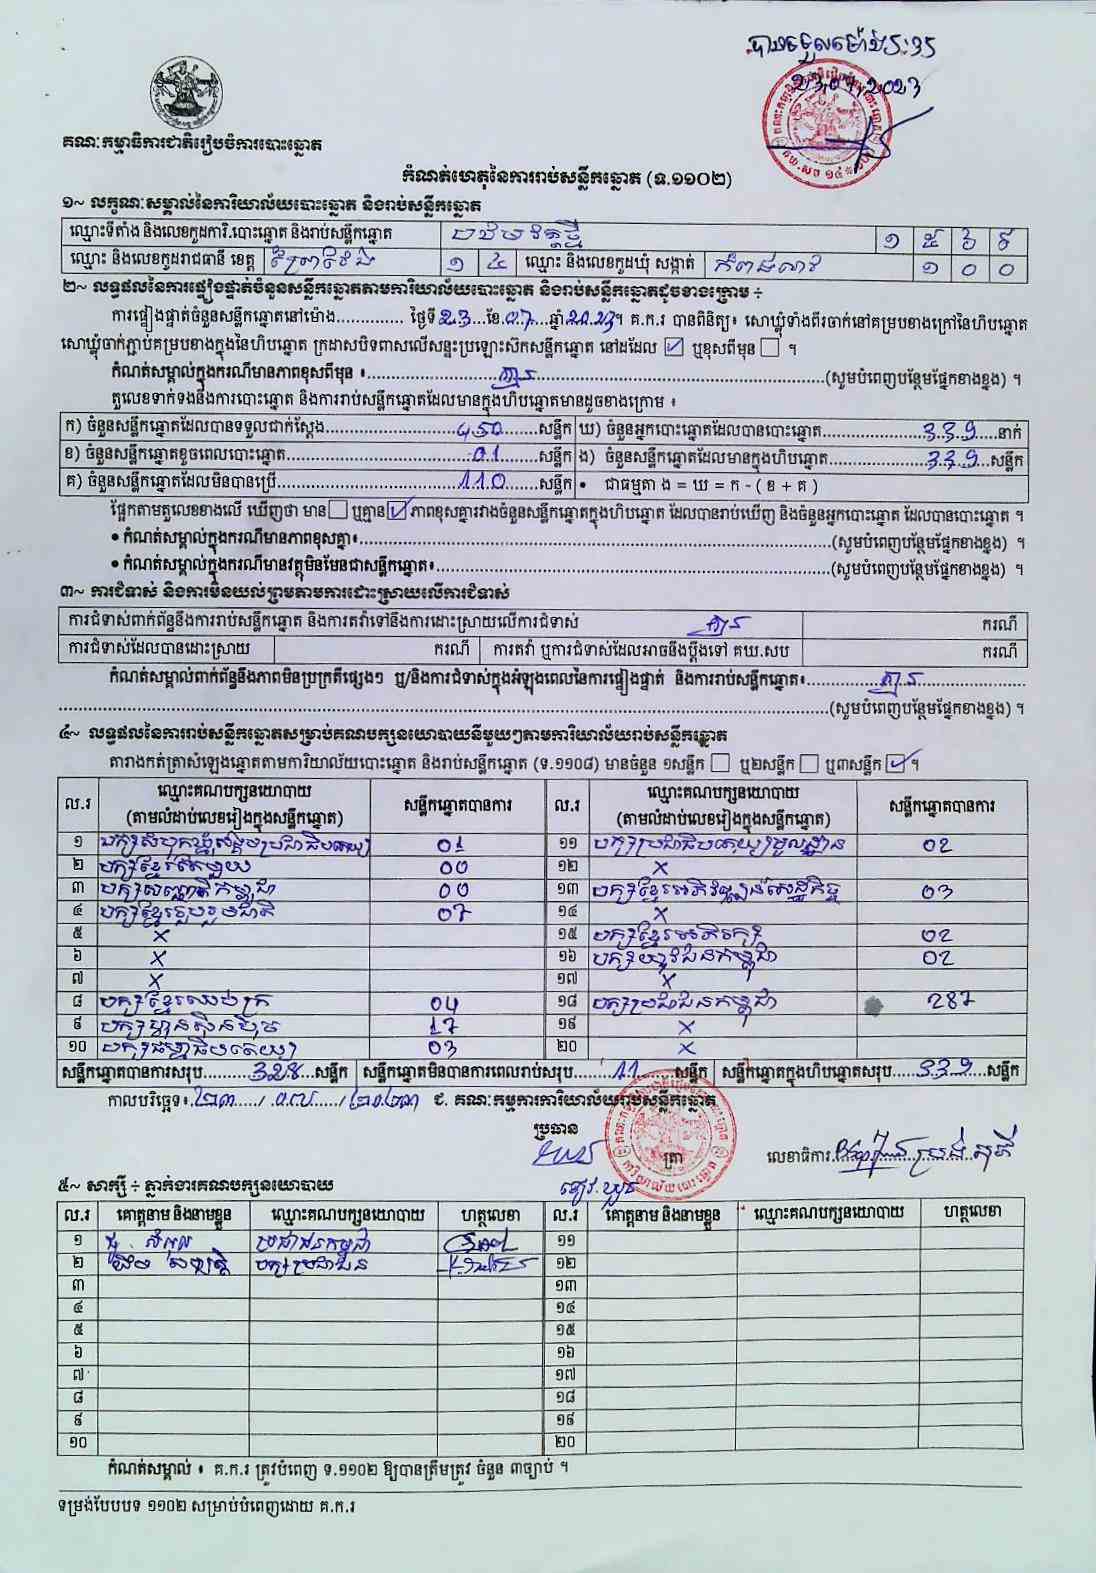 បានទទួលម៉ោង 5:35
23.07.2023
គណៈកម្មាធិការជាតិរៀបចំការបោះឆ្នោត
កំណត់ហេតុនៃការរាប់សន្លឹកឆ្នោត (ទ.១១០២)
១~ លក្ខណៈសម្គាល់នៃការិយាល័យបោះឆ្នោត និងរាប់សន្លឹកឆ្នោត
ឈ្មោះទីតាំង និងលេខកូដការិ.បោះឆ្នោត និងរាប់សន្លឹកឆ្នោត ១ ៥ ៦ ៩
ឈ្មោះ និងលេខកូដរាជធានី ខេត្ត ព្រៃវែង ១ ៤ ឈ្មោះ និងលេខកូដឃុំ សង្កាត់ ១ ០ ០
២~ លទ្ធផលនៃការផ្ទៀងផ្ទាត់ចំនួនសន្លឹកឆ្នោតតាមការិយាល័យបោះឆ្នោត និងរាប់សន្លឹកឆ្នោតដូចខាងក្រោម ÷
ការផ្ទៀងផ្ទាត់ចំនួនសន្លឹកឆ្នោតនៅម៉ោង............ ថ្ងៃទី 23 ខែ 07 ឆ្នាំ 2023។ គ.ក.រ បានពិនិត្យ៖ សោឃ្លុំទាំងពីរចាក់នៅគម្របខាងក្រៅនៃហិបឆ្នោត
សោឃ្លុំចាក់ភ្ជាប់គម្របខាងក្នុងនៃហិបឆ្នោត ក្រដាសបិទពាសលើសន្ទះប្រឡោះស៊កសន្លឹកឆ្នោត នៅដដែល ☑ ឬខុសពីមុន ☐ ។
កំណត់សម្គាល់ក្នុងករណីមានភាពខុសពីមុន ៖ គ្មាន (សូមបំពេញបន្ថែមផ្នែកខាងខ្នង) ។
តួលេខទាក់ទងនឹងការបោះឆ្នោត និងការរាប់សន្លឹកឆ្នោតដែលមានក្នុងហិបឆ្នោតមានដូចខាងក្រោម ៖
ក) ចំនួនសន្លឹកឆ្នោតដែលបានទទួលជាក់ស្តែង 450 សន្លឹក ឃ) ចំនួនអ្នកបោះឆ្នោតដែលបានបោះឆ្នោត 339 នាក់
ខ) ចំនួនសន្លឹកឆ្នោតខូចពេលបោះឆ្នោត 01 សន្លឹក ង) ចំនួនសន្លឹកឆ្នោតដែលមានក្នុងហិបឆ្នោត 339 សន្លឹក
គ) ចំនួនសន្លឹកឆ្នោតដែលមិនបានប្រើ 110 សន្លឹក • ជាធម្មតា ង = ឃ = ក - ( ខ + គ )
ផ្អែកតាមតួលេខខាងលើ ឃើញថា មាន ☐ ឬគ្មាន ☑ ភាពខុសគ្នារវាងចំនួនសន្លឹកឆ្នោតក្នុងហិបឆ្នោត ដែលបានរាប់ឃើញ និងចំនួនអ្នកបោះឆ្នោត ដែលបានបោះឆ្នោត ។
• កំណត់សម្គាល់ក្នុងករណីមានភាពខុសគ្នា៖ (សូមបំពេញបន្ថែមផ្នែកខាងខ្នង) ។
• កំណត់សម្គាល់ក្នុងករណីមានវត្ថុមិនមែនជាសន្លឹកឆ្នោត៖ (សូមបំពេញបន្ថែមផ្នែកខាងខ្នង) ។
៣~ ការជំទាស់ និងការមិនយល់ព្រមតាមការដោះស្រាយលើការជំទាស់
ការជំទាស់ពាក់ព័ន្ធនឹងការរាប់សន្លឹកឆ្នោត និងការតវ៉ាទៅនឹងការដោះស្រាយលើការជំទាស់ គ្មាន ករណី
ការជំទាស់ដែលបានដោះស្រាយ ករណី ការតវ៉ា ឬការជំទាស់ដែលអាចនឹងប្តឹងទៅ គឃ.សប ករណី
កំណត់សម្គាល់ពាក់ព័ន្ធនឹងភាពមិនប្រក្រតីផ្សេងៗ ឬ/និងការជំទាស់ក្នុងអំឡុងពេលនៃការផ្ទៀងផ្ទាត់ និងការរាប់សន្លឹកឆ្នោត៖ គ្មាន
(សូមបំពេញបន្ថែមផ្នែកខាងខ្នង) ។
៤~ លទ្ធផលនៃការរាប់សន្លឹកឆ្នោតសម្រាប់គណបក្សនយោបាយនីមួយៗតាមការិយាល័យរាប់សន្លឹកឆ្នោត
តារាងកត់ត្រាសំឡេងឆ្នោតតាមការិយាល័យបោះឆ្នោត និងរាប់សន្លឹកឆ្នោត (ទ.១១០៨) មានចំនួន ១សន្លឹក ☐ ឬ២សន្លឹក ☐ ឬ៣សន្លឹក ☑ ។
ល.រ ឈ្មោះគណបក្សនយោបាយ (តាមលំដាប់លេខរៀងក្នុងសន្លឹកឆ្នោត) សន្លឹកឆ្នោតបានការ ល.រ ឈ្មោះគណបក្សនយោបាយ (តាមលំដាប់លេខរៀងក្នុងសន្លឹកឆ្នោត) សន្លឹកឆ្នោតបានការ
១ បក្សសំបុកឃ្មុំសង្គមប្រជាធិបតេយ្យ 01 ១១ បក្សប្រជាធិបតេយ្យមូលដ្ឋាន 02
២ បក្សខ្មែរតែមួយ 00 ១២ ×
៣ បក្សសញ្ជាតិកម្ពុជា 00 ១៣ បក្សខ្មែរអភិវឌ្ឍន៍សេដ្ឋកិច្ច 03
៤ បក្សខ្មែររួបរួមជាតិ 07 ១៤ ×
៥ × ១៥ បក្សខ្មែរអភិរក្ស 02
៦ × ១៦ បក្សយុវជនកម្ពុជា 02
៧ × ១៧ ×
៨ បក្សខ្មែរឈប់ក្រ 04 ១៨ បក្សប្រជាជនកម្ពុជា 287
៩ បក្សហ្វ៊ុនស៊ិនប៉ិច 17 ១៩ ×
១០ បក្សធម្មាធិបតេយ្យ 03 ២០ ×
សន្លឹកឆ្នោតបានការសរុប 328 សន្លឹក សន្លឹកឆ្នោតមិនបានការពេលរាប់សរុប 11 សន្លឹក សន្លឹកឆ្នោតក្នុងហិបឆ្នោតសរុប 339 សន្លឹក
កាលបរិច្ឆេទ៖ ២៣ / ០៧ / ២០២៣ ជ. គណៈកម្មការការិយាល័យរាប់សន្លឹកឆ្នោត
ប្រធាន
ត្រា លេខាធិការ
៥~ សាក្សី ÷ ភ្នាក់ងារគណបក្សនយោបាយ
ល.រ គោត្តនាម និងនាមខ្លួន ឈ្មោះគណបក្សនយោបាយ ហត្ថលេខា ល.រ គោត្តនាម និងនាមខ្លួន ឈ្មោះគណបក្សនយោបាយ ហត្ថលេខា
១ ប្រជាជនកម្ពុជា ១១
២ បក្សប្រជាជន ១២
៣ ១៣
៤ ១៤
៥ ១៥
៦ ១៦
៧ ១៧
៨ ១៨
៩ ១៩
១០ ២០
កំណត់សម្គាល់ ៖ គ.ក.រ ត្រូវបំពេញ ទ.១១០២ ឱ្យបានត្រឹមត្រូវ ចំនួន ៣ច្បាប់ ។
ទម្រង់បែបបទ ១១០២ សម្រាប់បំពេញដោយ គ.ក.រ